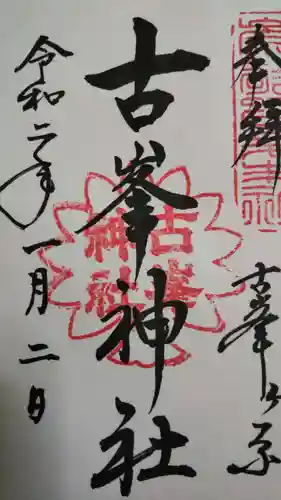 奉拝
古峯ヶ原
古峯神社
古峯
神社
令和二年一月二日